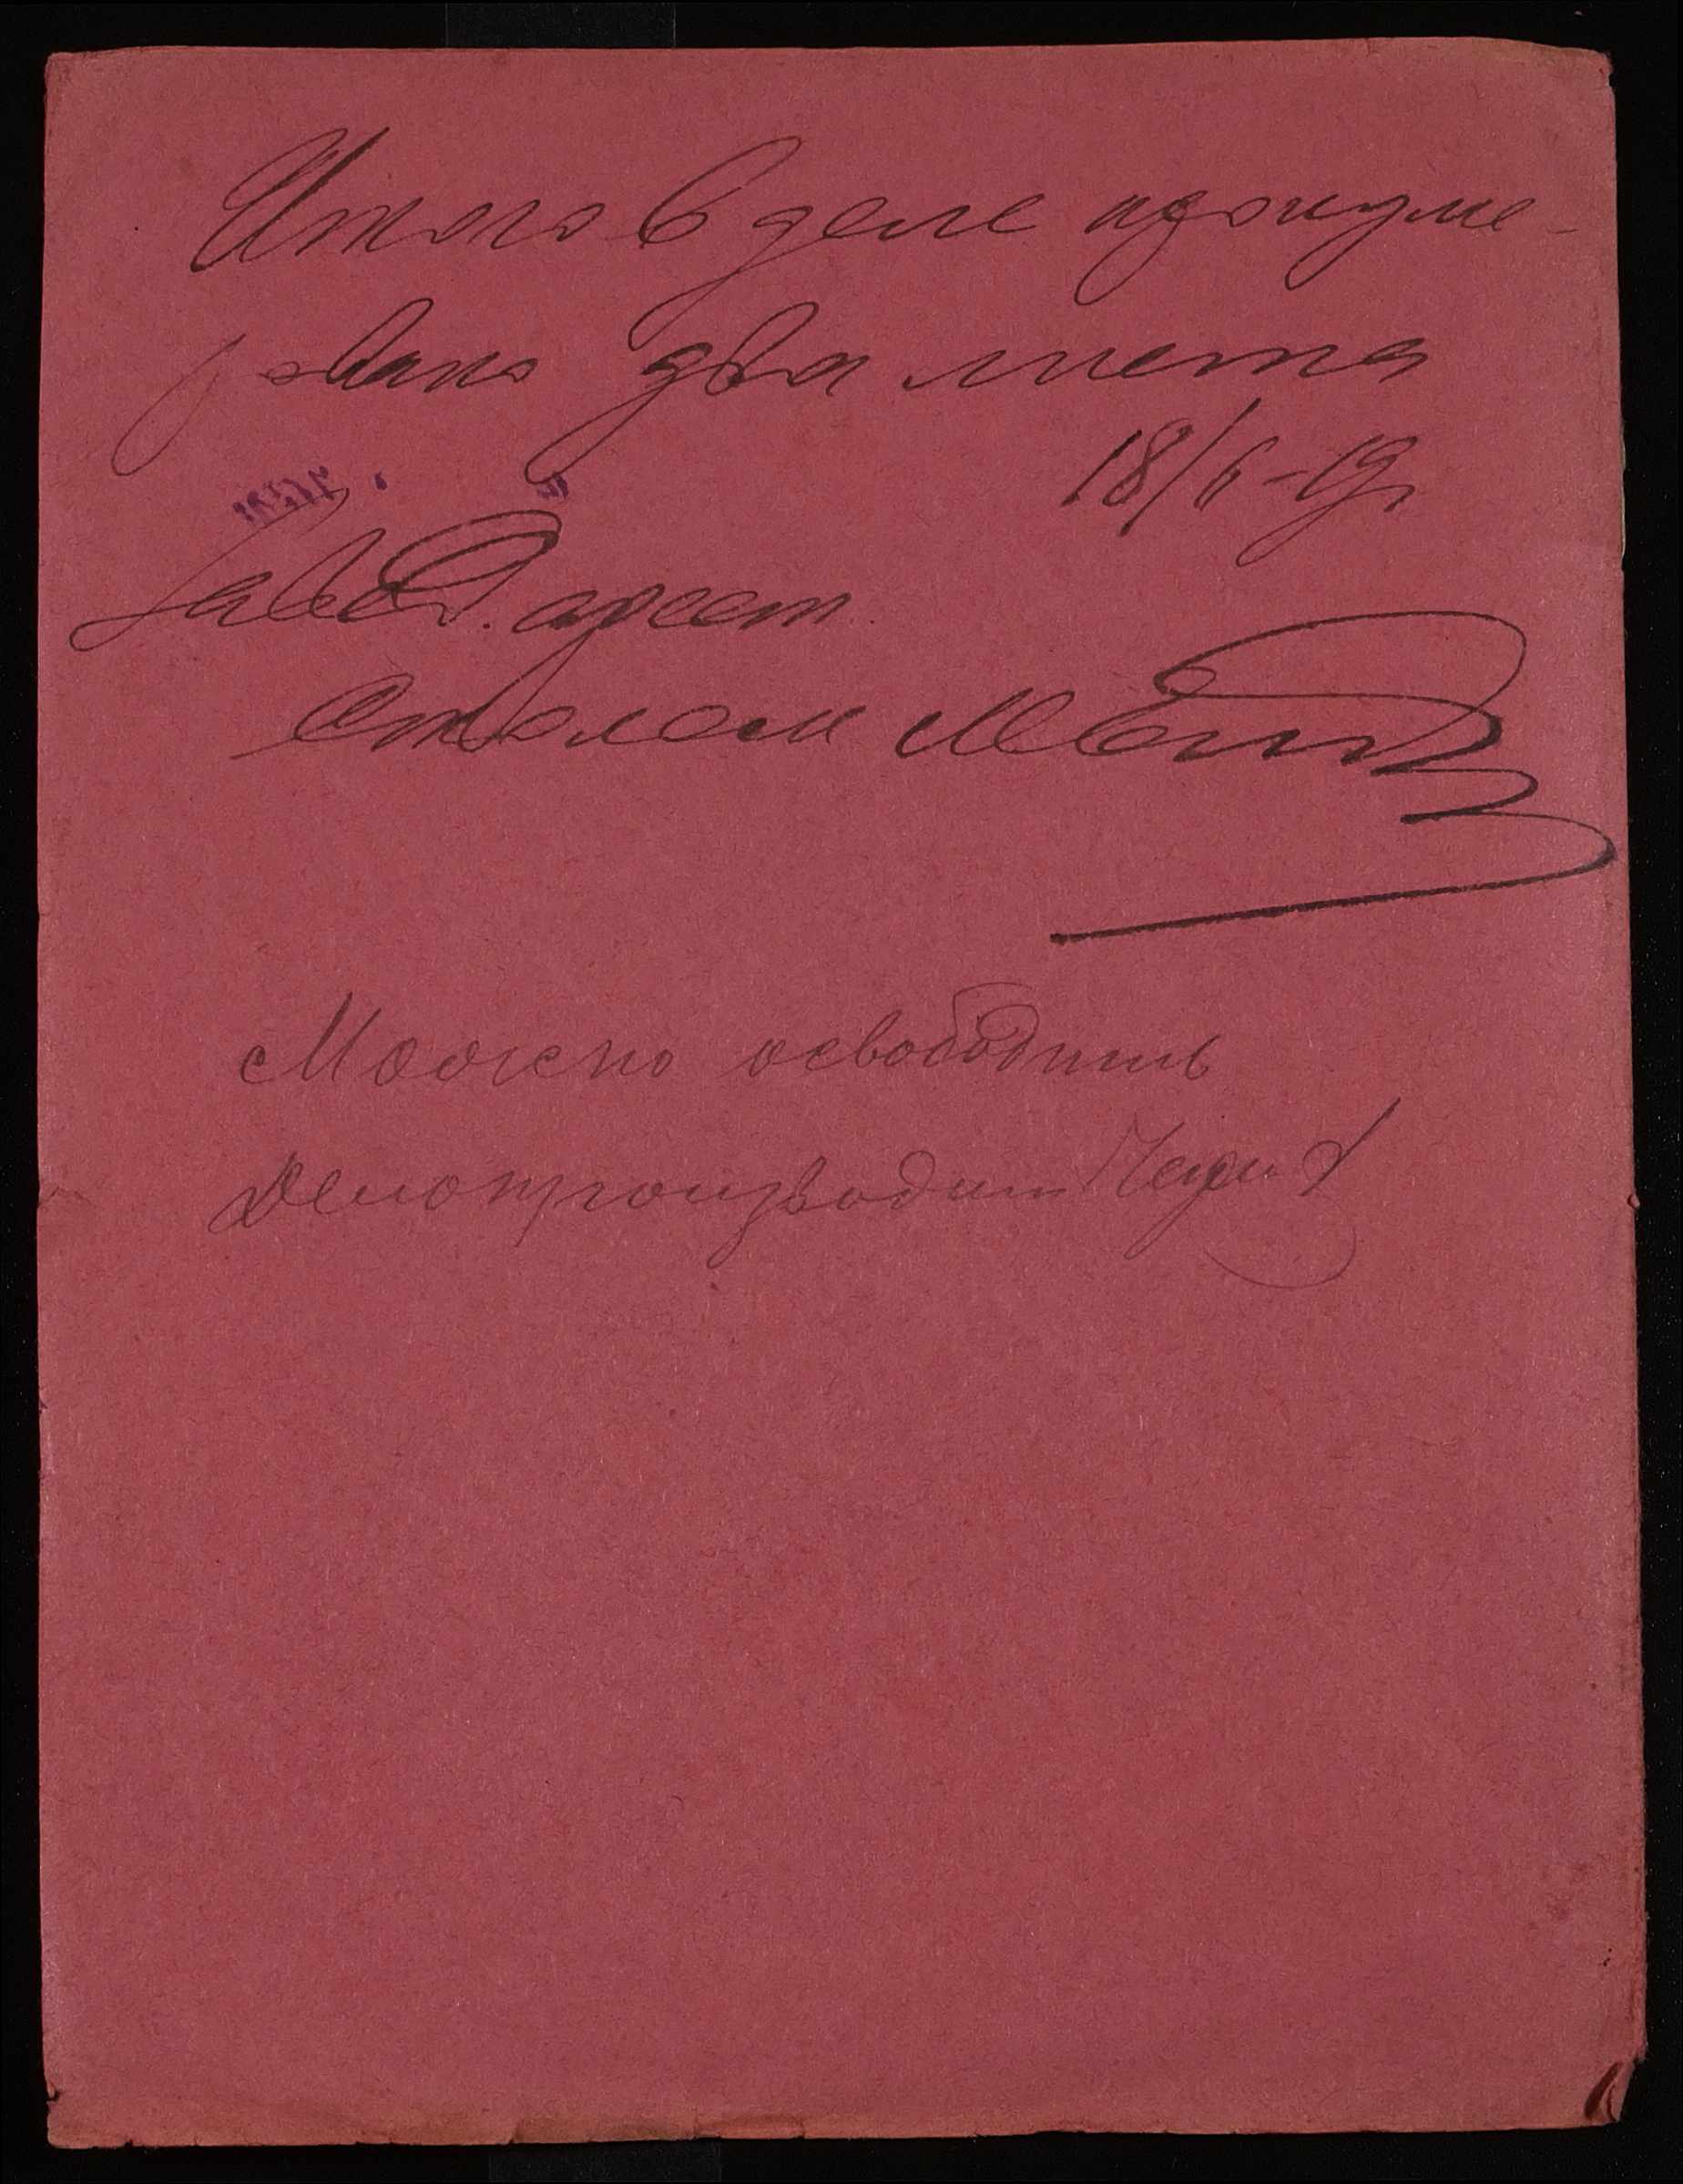 Итого в деле пронуме-
ровано два листа
18/6-19г
Завед. арест.
столом
Можно освободить
Делопроизводит